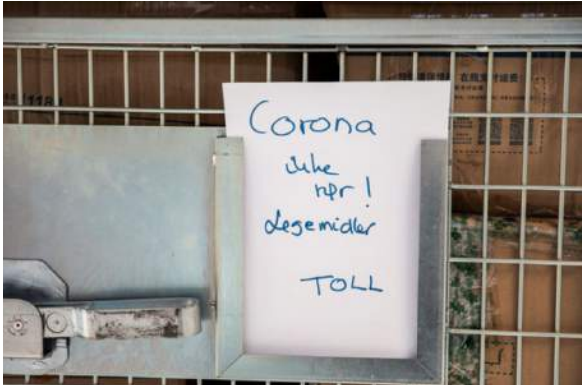 Corona
ikke
rør !
Legemidler
TOLL